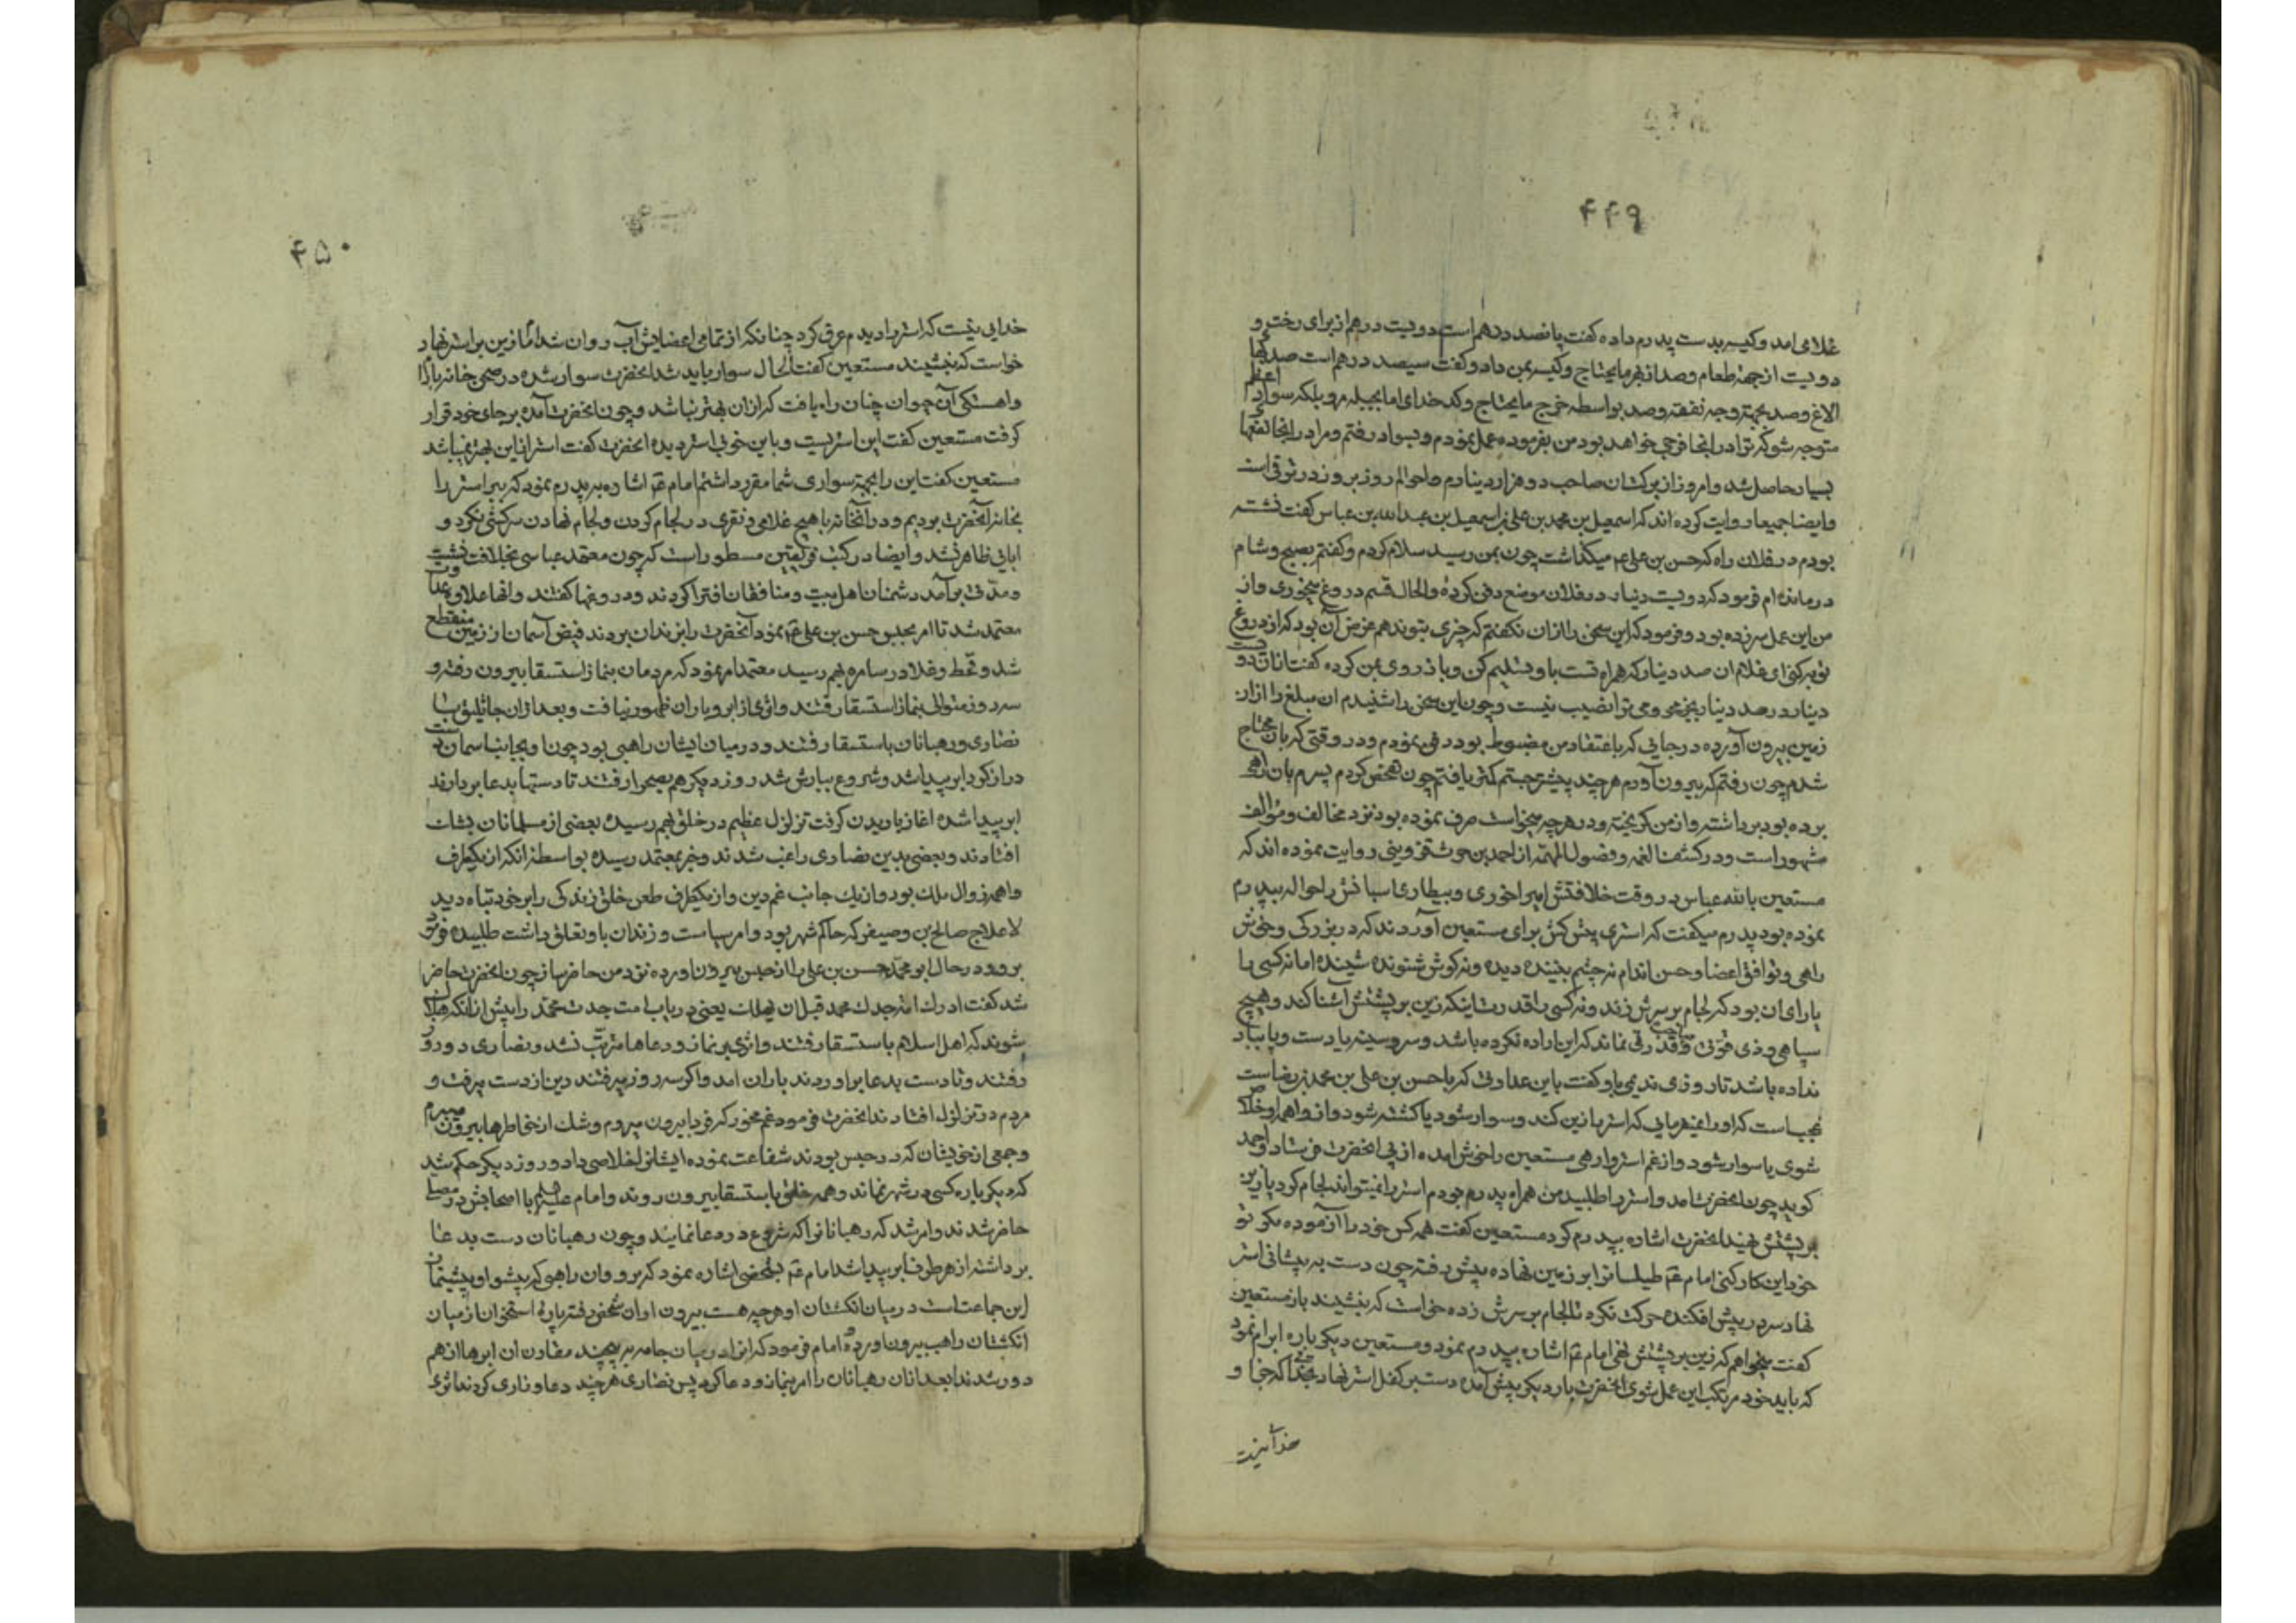 ۴۴۹
غلامی امد و کیسه بدست پدرم داده کفت پانصد درهم است دویت درهم از برای رخت و
دویت از جهة طعام و صد از بهر مایحتاج و کیسه بمن داد و کفت سیصد درهم است صد بهای
الاغ و صد بجهة وجه نفقه و صد بواسطه خرج مایحتاج وکد خدای اما بجبله مرو بلکه سواد اعظم را
متوجه شو که ترا در انجا فرجی خواهد بود من بفرموده عمل نمودم و بسواد رفتم و مرا در انجا نفعها
بسیار حاصل شد و امروز از برکت ان صاحب دو هزار دینارم و احوالم روز بروز در ترقی است
و ایضا جمیعا روایت کرده اند که اسمعیل بن محمد بن علی بن اسمعیل بن عبدالله بن عباس کفت نشسته
بودم در فلان راه که حسن بن علی ع میکذشت چون بمن رسید سلام کردم و کفتم بصبح و شام
درمانده ام فرمود که دویت دینار در فلان موضع دفن کرده والحال قسم دروغ میخوری و از
من این عمل سر زده بود و فرمود که این سخن را از ان نکفتم که چیزی بتو ندهم غرض آن بود که از دروغ
توبه کنی ای غلام ان صد دینار که همراه تست باو تسلیم کن و باز روی بمن کرده کفت از ان دویت
دینار در صد دینار محرومی ترا نصیب نیست و چون این سخن را شنیدم ان مبلغ را از ان
زمین بیرون آورده در جایی که باعتقاد من مضبوط بود دفن نمودم و در وقتی که بان محتاج
شدم چون رفتم که بیرون آورم هر چند پیشتر جستم کمتر یافتم چون تفحص کردم پسرم بان راهی
برده بود برداشته و از من کریخته و در هر چه میخواست صرف نموده بود نزد مخالف و مؤالف
مشهور است و در کشف الغمه و فصول المهمه از احمد بن حرث قزوینی روایت نموده اند که
مستعین بالله عباس در وقت خلافتش امیراخوری و بیطاری اسبانش را حواله بپدرم
نموده بود پدرم میکفت که استری پیش کش برای مستعین آوردند که در بزرکی و خوش
راهی و توافق اعضا و حسن اندام نه چشم بیننده دیده و نه کوش شنونده شنیده اما نه کسی را
یارای ان بود که لجام بر سرش زند و نه کسی را قدرت اینکه زین بر پشتش آشنا کند و هیچ
سپاهی و ذی قوتی و صاحب قدرتی نماند که این اراده نکرده باشد و سر و سینه یا دست و پا بباد
نداده باشد تا روزی ندیمی باو کفت باین عداوتی که با حسن بن علی بن محمد بن رضا است
عجب است که او را نمیفرمایی که استر را زین کند و سوار شود یا کشته شود و از واهمه او خلاص
شوی یا سوار شود و از غم استر وارهی مستعین را خوش امده از پی انحضرت فرستاد و احمد
کوید چون انحضرت امد و استر را طلبید من همراه پدرم بودم استر را نمیتوانند لجام کرد یا زین
بر پشتش نهند انحضرت اشاره بپدرم کرد مستعین کفت همه کس خود را آزموده مکر تو
خود این کار کنی امام ع م طیلسانرا بر زمین نهاده پیش رفته چون دست به پیشانی استر
نهاد سر در پیش افکنده حرکت نکرد تا لجام بر سرش زده خواست که بنشیند باز مستعین
کفت میخواهم که زین بر پشتش نهی امام ع م اشاره بپدرم نمود و مستعین دیکر باره ابرام نمود
که باید خود مرتکب این عمل شوی انحضرت بار دیکر پیش آمده دست بر کفل استر نهاد بخدا که خدا و
خدایی نیست
۴۵۰
خدایی نیست که استر را دیدم عرق کرد چنانکه از تمامی اعضایش آب روان شد امّا زین بر استر نهاد
خواست که بنشیند مستعین کفت الحال سوار باید شد انحضرت سوار شده در صحن خانه باز را
و اهستکی آن حیوان چنان راه یافت که از ان بهتر نباشد و چون انحضرت آمده بر جای خود قرار
کرفت مستعین کفت این استریست و باین خوبی استر دیده انحضرت کفت استر از این بهتر نمیباشد
مستعین کفت این را بجهة سواری شما مقرر داشتم امام ع م اشاره به پدرم نمود که ببر استر را
بخانه آنحضرت بردیم و در آنخانه با هیچ غلامی و نفری در لجام کردن و لجام نهادن سرکشی نکرد و
ابایی ظاهر نشد و ایضا در کتب فریقین مسطور است که چون معتمد عباسی بخلافت نشست
و مدتی برآمد دشمنان اهل بیت و منافقان افترا کردند و دروغها کفتند و انها علاوه عداوت
معتمد شد تا امر بحبس حسن بن علی ع م نمود آنحضرت را بزندان بردند فیض آسمان از زمین منقطع
شد و قحط و غلا در سامره بهم رسید معتمد امر نمود که مردمان بنماز استسقا بیرون رفته و
سه روز متوالی بنماز استسقا رفتند و اثری از ابر و باران ظهور نیافت و بعد از ان جاثلیق با
نصاری و رهبانان باستسقا رفتند و در میان ایشان راهبی بود چون او بجانب اسمان دست
دراز کرد ابر پیدا شد و شروع ببارش شد روز دیکر هم بصحرا رفتند تا دستها بدعا بردارند
ابر پیدا شده اغاز باریدن کرفت تزلزل عظیم در خلق بهم رسیده بعضی از مسلمانان بشک
افتادند و بعضی بدین نصاری راغب شدند و خبر بمعتمد رسیده بواسطه انکه از یکطرف
واهمه زوال ملک بود و از یک جانب غم دین و از یکطرف طعن خلق زندکی را بر خود تباه دید
لاعلاج صالح بن وصیف که حاکم شهر بود و امر سیاست و زندان باو تعلق داشت طلبیده فرمود
برو و در حال ابو محمد حسن بن علی را از حبس بیرون اورده نزد من حاضر ساز چون انحضرت حاضر
شد کفت ادرک امة جدک محمد قبل ان یهلک یعنی دریاب امت جدت محمد را پیش از انکه هلاک
شوند که اهل اسلام باستسقا رفتند و اثری بر نماز و دعاها مترتب نشد و نصاری دو روز
رفتند و تا دست بدعا براوردند باران امد و اکر سه روز میرفتند دین از دست میرفت و
مردم در تزلزل افتادند انحضرت فرمود غم مخور که فردا بیرون میروم و شک از خاطرها بیرون میبرم
و جمعی از خویشان که در حبس بودند شفاعت نموده ایشانرا خلاصی داد و روز دیکر حکم شد
که دیکر باره کسی در شهر نماند و همه خلق باستسقا بیرون روند و امام علیه السلم با اصحابش در مصلی
حاضر شدند و امر شد که رهبانانرا که شروع در دعا نمایند و چون رهبانان دست بدعا
برداشته از هر طرف ابر پیدا شد امام ع م بشخصی اشاره نمود که برو و ان راهبی که پیشوا و پیشنماز
این جماعت است در میان انکشتان او هر چه هست بیرون اور ان شخص رفته پاره استخوان از میان
انکشتان راهب بیرون آورده امام فرمود که انرا در میان جامه بر پیچید مقارن ان ابرها از هم
دور شدند بعد از ان رهبانان را امر بنماز و دعا کرد پس نصاری هر چند دعا و زاری کردند اثری